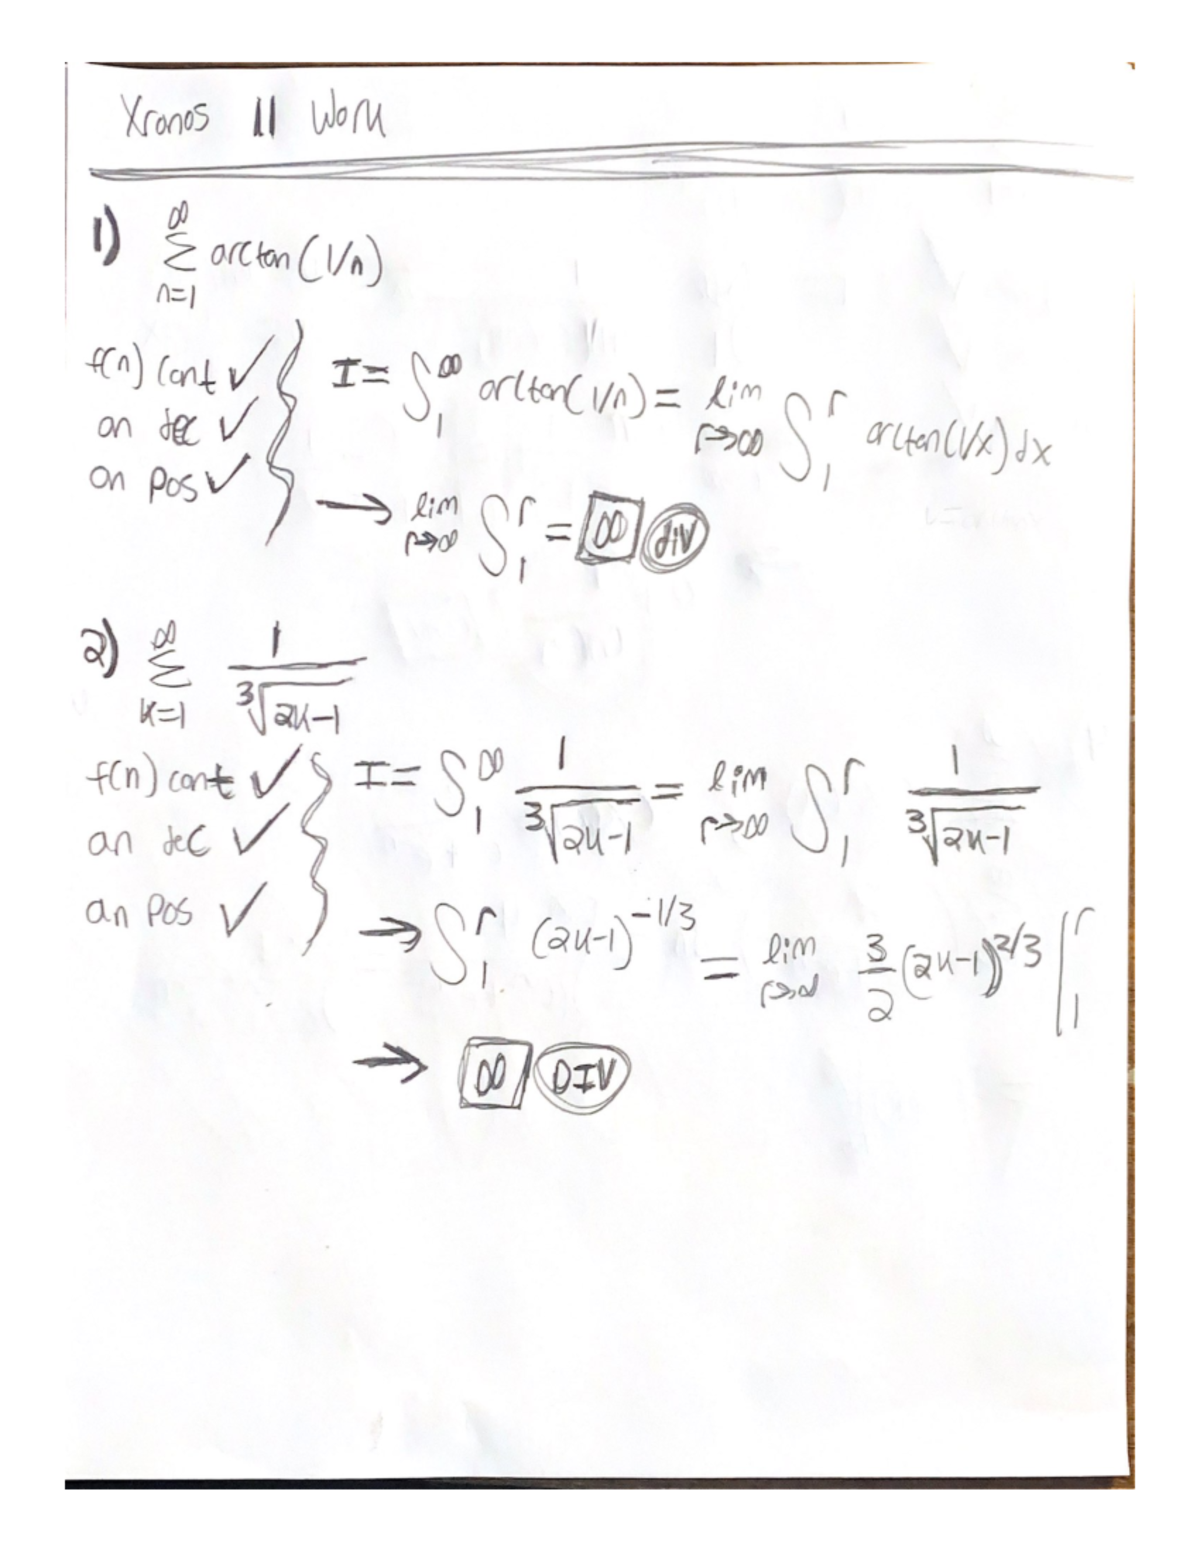 Xronos 11 Work
1) ∞ Σ n=1 arctan(1/n)
f(n) cont ✓
an dec ✓
an pos ✓
I = ∫₁^∞ arctan(1/n) = lim r→∞ ∫₁^r arctan(1/x)dx
→ lim r→∞ ∫₁^r = ∞ div
2) ∞ Σ k=1 1/∛(2k-1)
f(n) cont ✓
an dec ✓
an pos ✓
I = ∫₁^∞ 1/∛(2k-1) = lim r→∞ ∫₁^r 1/∛(2k-1)
→ ∫₁^r (2k-1)^-1/3 = lim r→∞ 3/2 (2k-1)^2/3 |₁^r
→ ∞ DIV